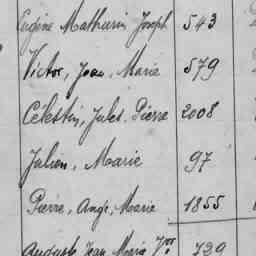 Eugène Mathurin Joseph 543
Victor, Jean, Marie 579
Célestin, Jules, Pierre 2008
Julien, Marie 97
Pierre, Ange, Marie 1855
Auguste Jean Marie 729